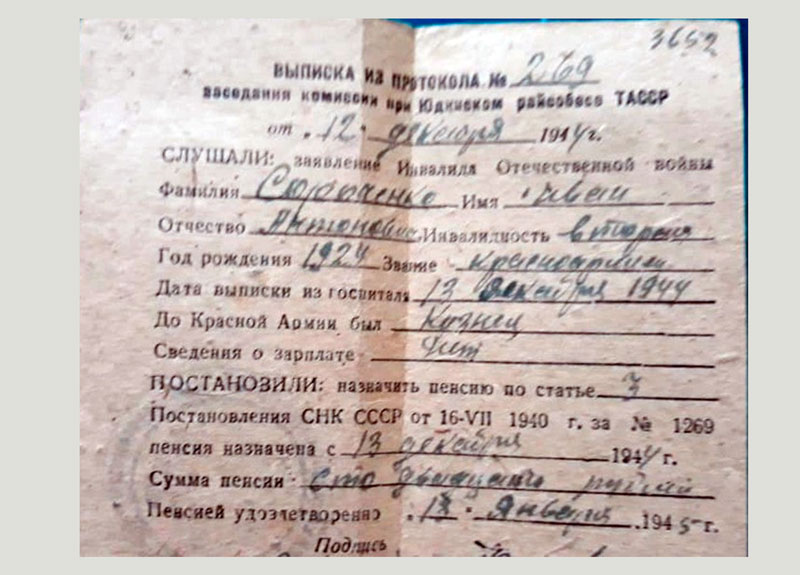 3652
ВЫПИСКА ИЗ ПРОТОКОЛА № 269
заседания комиссии при Юдинском райсобесе ТАССР
от "12" декабря 1944 г.
СЛУШАЛИ: заявление Инвалида Отечественной войны
Фамилия Имя Иван
Отчество Антонович Инвалидность вторая
Год рождения 1924 Звание красноармеец
Дата выписки из госпиталя 13 декабря 1944
До Красной Армии был Кузнец
Сведения о зарплате Нет
ПОСТАНОВИЛИ: назначить пенсию по статье 3
Постановления СНК СССР от 16-VII 1940 г. за № 1269
пенсия назначена с 13 декабря 1944 г.
Сумма пенсии сто двадцать рублей
Пенсией удовлетворенно "13" Января 1945 г.
Подпись